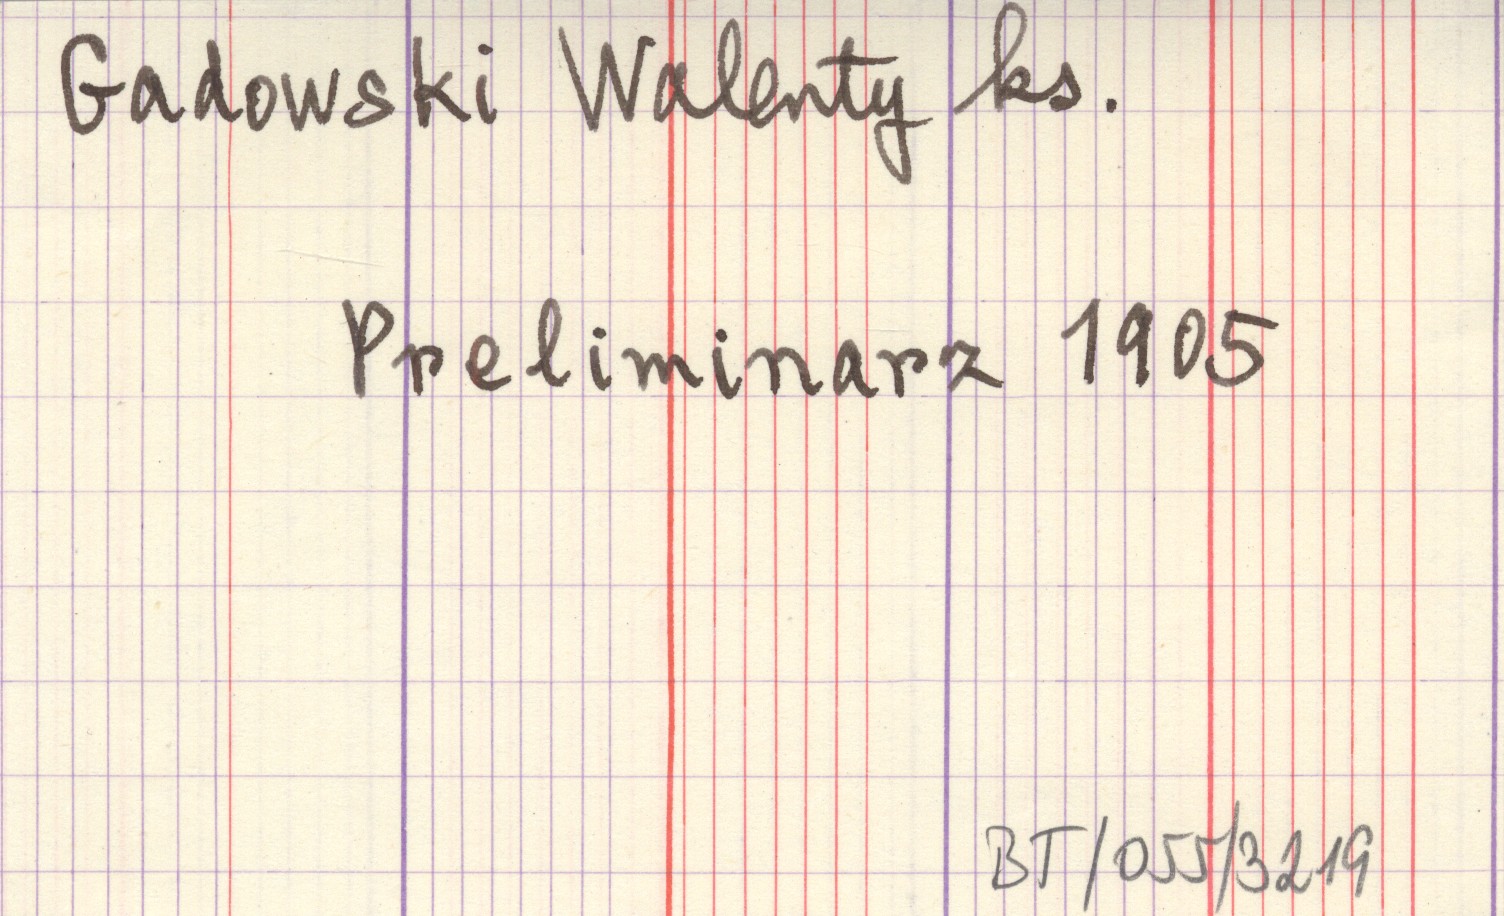 Gadowski Walenty ks.
Preliminarz 1905
BT/055/3219